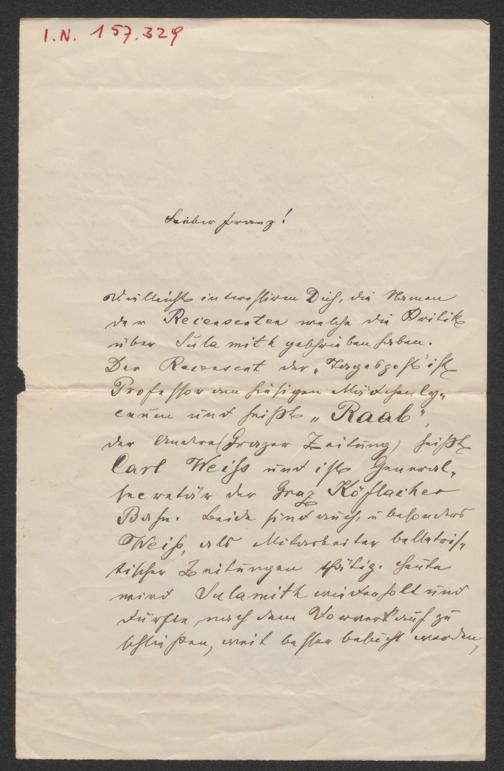 I.N. 157.329
Lieber Franz!
Vielleicht interessiren Dich, die Namen
der Recensenten welche die Kritik
über Sulamith geschrieben haben.
Der Recensent der „Tagespost" ist
Professor am hiesigen Mädchenly-
ceum und heißt „Raab",
der Andere (Grazer Zeitung) heißt
Carl Weiß und ist General-
secretär der Graz Köflacher
Bahn. Beide sind auch, u besonders
Weiß, als Mitarbeiter belletris-
tischer Zeitungen thätig. Heute
wird Sulamith wiederholt und
dürfte, nach dem Vorverkauf zu
schließen, weit besser besucht werden,